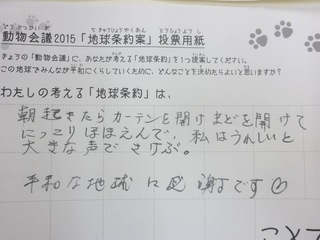 動物会議2015「地球条約案」投票用紙
きょうの「動物会議」に、あなたが考える「地球条約」を1つ提案してください。
この地球でみんなが平和にくらしていくために、どんなことを決めたらよいと思いますか?
わたしの考える「地球条約」は、
朝起きたらカーテンを開けまどを開けて
にっこりほほえんで、私はうれしいと
大きな声でさけぶ。
平和な地球に感謝です